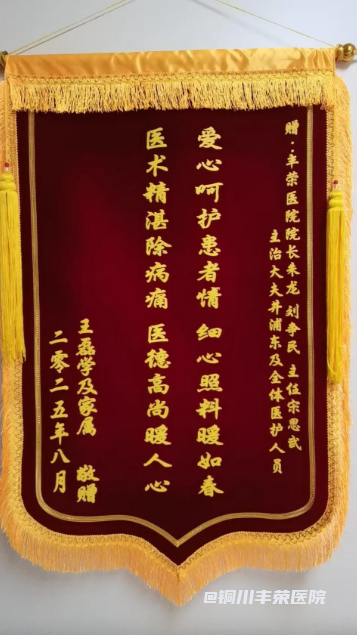 赠：丰荣医院院长来龙 刘争民 主任宗思武
主治大夫井浦东及全体医护人员
爱心呵护患者情 细心照料暖如春
医术精湛除病痛 医德高尚暖人心
王磊学及家属 敬赠
二零二五年八月
@铜川丰荣医院